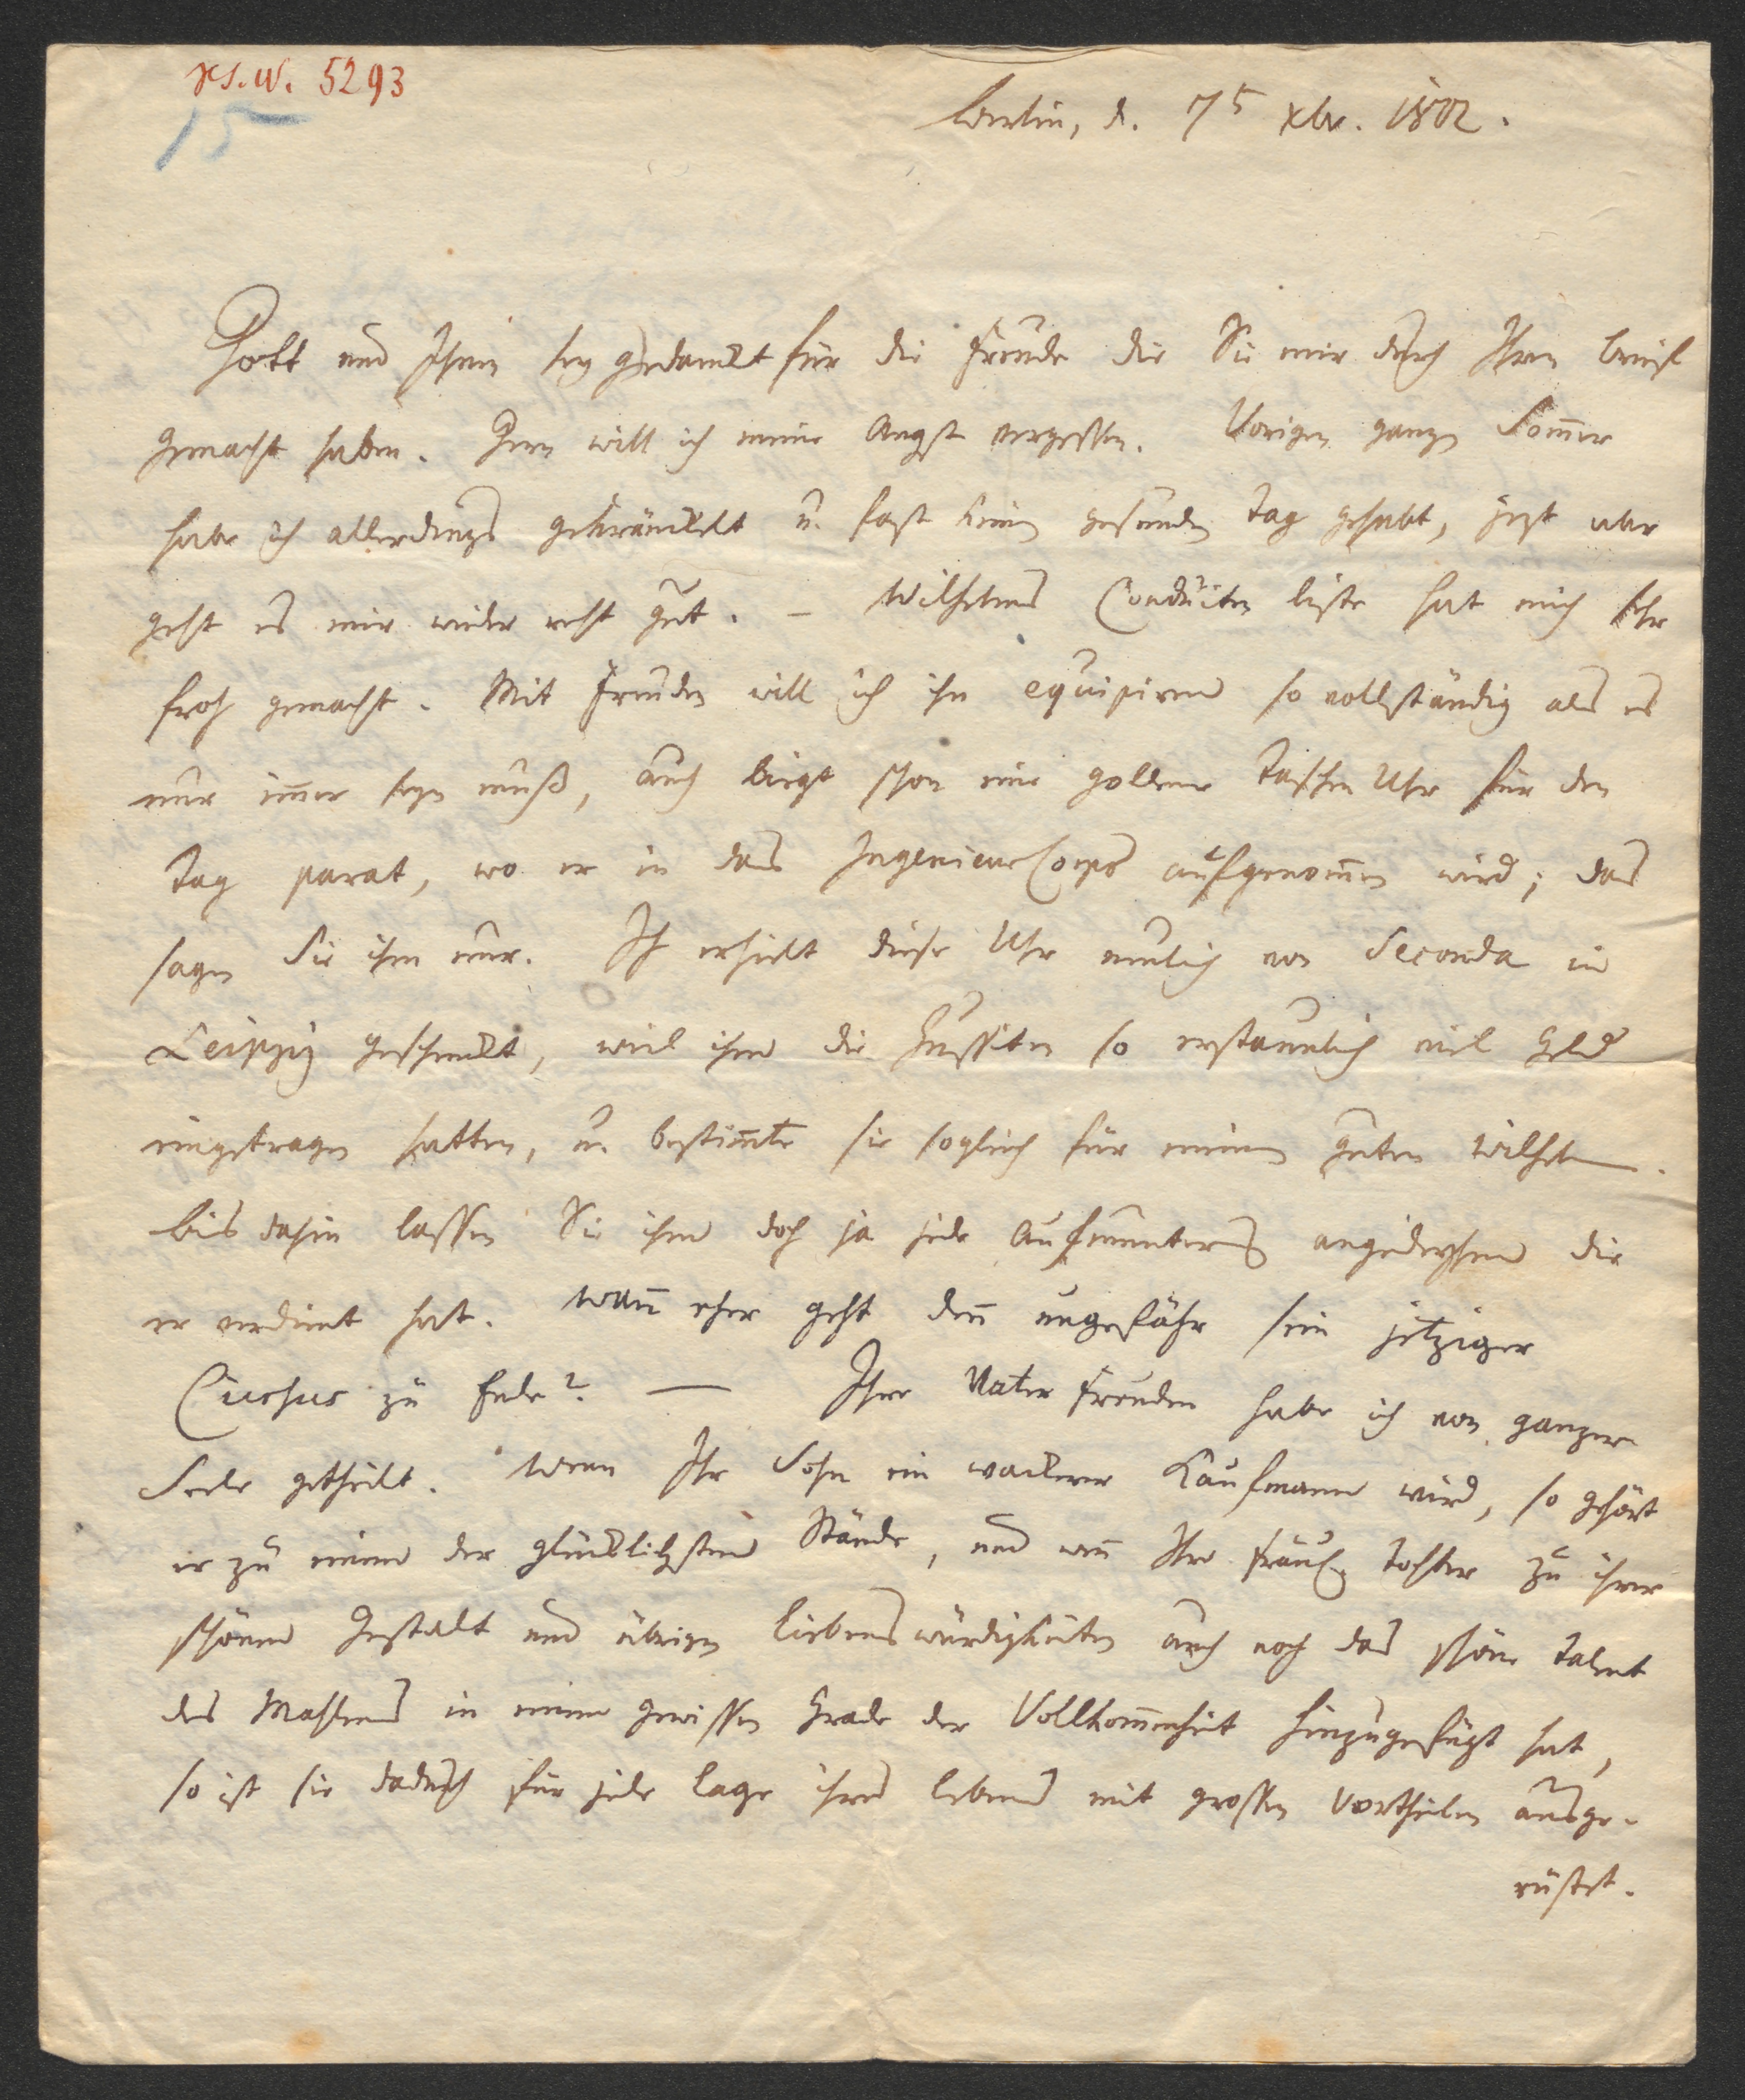 15
Berlin, d. 7t xbr. 1802.
Gott und Ihnen sey gedankt für die Freude die Sie mir durch Ihren Brief
gemacht haben. Gern will ich meine Angst vergessen. Vorigen ganzen Som̄er
habe ich allerdings gekränkelt u. fast keinen gesunden Tag gehabt, jezt aber
geht es mir wieder recht gut. – Wilhelms Conduiten liste hat mich sehr
froh gemacht. Mit Freuden will ich ihn equipiren so vollständig als es
nur im̄er seyn muß, auch liegt schon eine goldene Taschen Uhr für den
Tag parat, wo er in das Ingenieur Corps aufgenom̄en wird; das
sagen Sie ihm nur. Ich erhielt diese Uhr neulich von Seconda in
Leipzig geschenkt, weil ihm die Hussiten so erstaunlich viel Geld
eingetragen hatten, u. bestim̄te sie sogleich für meinen guten Wilhelm.
Bis dahin lassen Sie ihm doch ja jede Aufmunterung angedeyhen die
er verdient hat. Wan̄ eher geht den̄ ungefähr sein jetziger
Cursus zu Ende? — Ihre Vater Freuden habe ich von ganzer
Seele getheilt. Wenn Ihr Sohn ein wackerer Kaufmann wird, so gehört
er zu einem der glücklichsten Stände, und wen̄ Ihre Tochter zu ihrer
schönen Gestalt und übrigen Liebenswürdigkeiten auch noch das schöne Talent
des Mahlens in einem gewissen Grade der Vollkom̄enheit hinzugefügt hat,
so ist sie dadurch für jede Lage ihres Lebens mit grossen Vortheilen ausge-
rüstet.